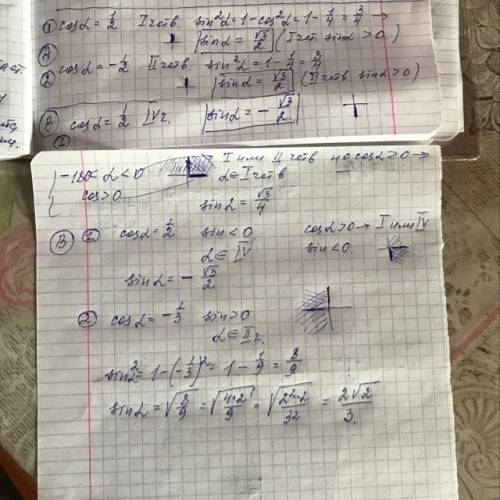 ① cosα = 1/2 I четв sin²α = 1 - cos²α = 1 - 1/4 = 3/4 →
sinα = √3/2 (I чет. sinα > 0)
Ⓐ
② cosα = -1/2 II четв sin²α = 1 - 1/4 = 3/4
sinα = √3/2 (II четв sinα > 0)
Ⓑ cosα = 1/2 IV ч. sinα = - √3/2
①
{ -180 < α < 0 I или II четв но cosα > 0 →
cos > 0 α ∈ I четв
sinα = √3/4
Ⓑ ① cosα = 1/2 sin < 0 cosα > 0 → I или IV
α ∈ IV sin < 0
sinα = - √3/2
② cosα = - 1/3 sin > 0
α ∈ II ч.
sin²α = 1 - (-1/3)² = 1 - 1/9 = 8/9
sinα = √(8/9) = √(4·2/9) = √(2²·2/3²) = 2√2/3.